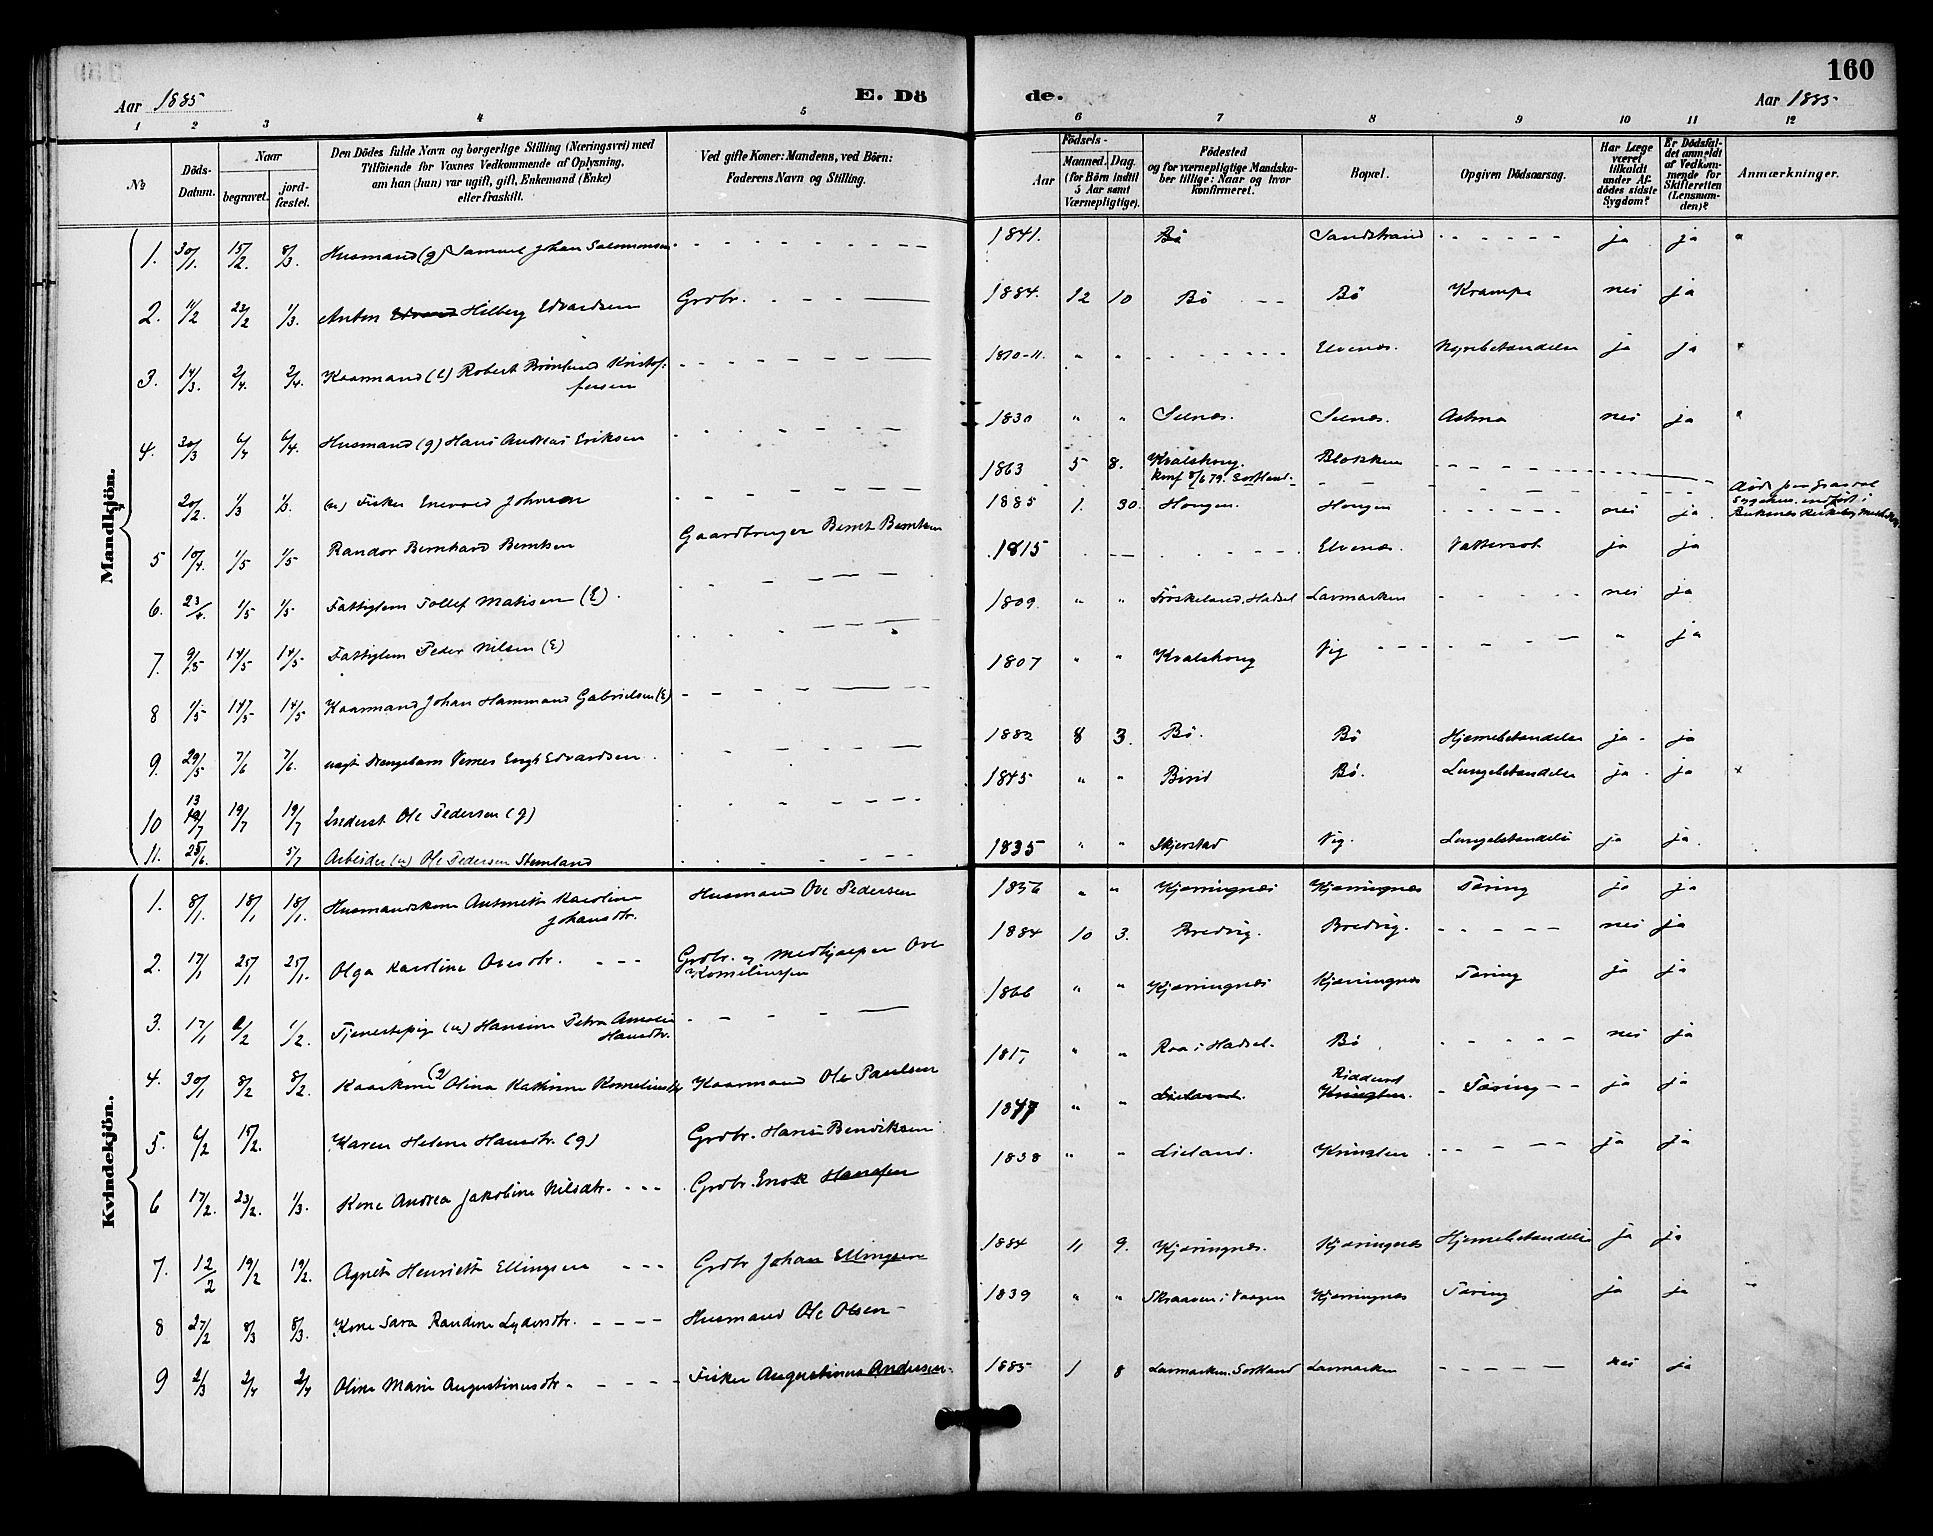 160
Aar 1885
E. Dö
de.
Aar 1885
1 2 3 4 5 6 7 8 9 10 11 12
No
Döds-Datum.
Naar
begravet.
jord-fæstet.
Den Dödes fulde Navn og borgerlige Stilling (Næringsvei) med
Tilföiende for Voxnes Vedkommende af Oplysning,
om han (hun) var ugift, gift, Enkemand (Enke)
eller fraskilt.
Ved gifte Koner: Mandens, ved Börn:
Faderens Navn og Stilling.
Födsels-
Aar
Maaned. Dag.
(for Börn indtil
5 Aar samt
Værnepligtige).
Födested
og for værnepligtige Mandska-
ber tillige: Naar og hvor
konfirmeret.
Bopæl.
Opgiven Dödsaarsag.
Har Læge
været
tilkaldt
under Af-
dödes sidste
Sygdom?
Er Dödsfal-
det anmeldt
af Vedkom-
mende for
Skifteretten
(Lensman-
den)?
Anmærkninger.
Mandkjön.
1. 30/1. 15/2. 8/3. Husmand (g) Samuel Johan Salomonsen 1841. Bö Sandstrand ja ja "
2. 11/2 23/2 1/3. Anton Edvard Hilberg Edvardsen Grdbr. 1884. 12 10 Bö Bö Krampe nei ja
3. 14/3. 2/4. 2/4. Kaarmand (E) Robert Brönlund Kristof-
fersen 1810-11. " " Elvenæs. Nyrebetændelse ja ja "
4. 30/3 6/4 6/4. Husmand (g) Hans Andreas Eriksen 1830 " " Selnæs. Selnæs. Astma nei ja "
20/2. 1/3 1/3. (u) Fisker Enevold Johnsen 1863 5 8. Kvalshoug.
konf 8/6 79. Sortland. Blokken
5 10/4. 1/5 1/5 Randor Bernhard Berntsen Gaardbruger Bernt Berntsen 1885 1. 30. Hougen. Hougen nei ja
6. 23/4. 1/5 1/5. Fattiglem Tollef Matisen (E). 1815 Elvenæs. Vattersot ja ja
7. 9/5 14/5 14/5. Fattiglem Peder Nilsen (E) 1809. " " Fröskeland, Hadsel Lavmarken nei ja
8 1/5 14/5 14/5 Kaarmand Johan Hammond Gabrielsen (E) 1807 " " Kvalshoug Vig " ja
9. 29/5 7/6 7/6. Edvardsen 1882 8 3. Bö. Bö Hjernebetændelse ja ja
10 13 19/7 19/7 Inderst Ole Pedersen (g) 1845 " " Birid Bö. Lungebetændelse ja ja
11. 25/6. 5/7 Arbeider (u) Ole Pedersen Stemland 1835 " " Skjerstad Vig. Lungebetændelse ja ja
Kvindekjön.
1. 8/1. 18/1 18/1. Husmandskone Karoline
Johansdtr. Husmand Ove Pedersen 1856 " " Kjærringnæs Kjærringnæs Tæring ja ja
2. 17/1 25/1 25/1. Olga Karoline Ovesdtr. Grdbr. og Medhjælper Ove
Korneliussen 1884 10 3. Bredvig. Bredvig. nei ja
3. 17/1 1/2 1/2. Tjenestepige (u) Hansine Petra Amalia
Hansdtr. 1866 " " Kjærringnæs Kjærringnæs Tæring ja ja
4. 30/1 8/2 8/2. Kaarkone (g) Olina Kathrine Korneliusdtr Kaarmand Ole Paulsen 181 " " Raa i Hadsel. Bö nei ja
5. 6/2 15/2. Karen Helene Hansdtr. (g) Grdbr. Hans Bendiksen 1847 " " Lieland. Kringlen. Tæring ja ja
6 17/2. 23/2. 1/3. Kone Andrea Jakobine Nilsdtr. Grdbr. Enok Hansen 1838 " " Lieland. Kringlen ja ja
7. 12/2 19/2 19/2. Agnete Henriette Ellingsen Grdbr Johan Ellingsen 1884 11 9. Kjærringnæs. Kjærringnæs Hjernebetændelse ja ja
8 27/2 8/3 8/3. Kone Sara Randine Lydersdtr. Husmand Ole Olsen 1839 " " Skraaven i Vaagen Kjærringnæs Tæring ja ja
9 2/3 2/4 2/4 Oline Marie Augustinusdtr. Fisker Augustinus Andersen 1885 1 8 Lavmarken, Sortland Lavmarken nei ja